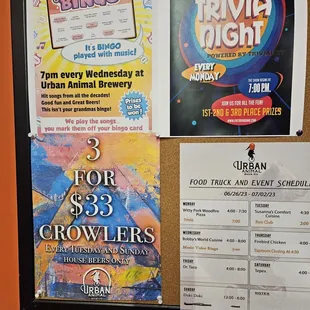 BINGO
It's BINGO
played with music!
7pm every Wednesday at
Urban Animal Brewery
Hit songs from all the decades!
Good fun and Great Beers!
This isn't your grandmas bingo!
Prizes
to be
won!
We play the songs
you mark them off your bingo card
TRIVIA
NIGHT
POWERED BY
EVERY
MONDAY
THE SHOW BEGINS AT
7:00 P.M.
JOIN US FOR ALL THE FUN!
1ST-2ND & 3RD PLACE PRIZES
3
FOR
$33
CROWLERS
EVERY TUESDAY AND SUNDAY
HOUSE BEERS ONLY
URBAN
URBAN
ANIMAL
FOOD TRUCK AND EVENT SCHEDULE
06/26/23 - 07/02/23
MONDAY
Witty Pork Woodfire
Pizza
4:00 - 7:30
Trivia
7:00
TUESDAY
Susanna's Comfort
Cuisine
Run Club
WEDNESDAY
Bobby's World Cuisine
4:00
Music Video Bingo
THURSDAY
Firebird Chicken
4:00
FRIDAY
SATURDAY
SUNDAY